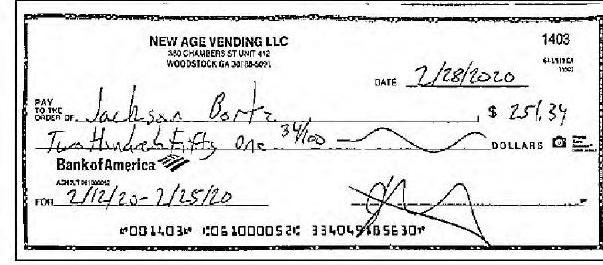 NEW AGE VENDING LLC
1403
380 CHAMBERS ST UNIT 412
WOODSTOCK GA 30188-5091
DATE 2/28/2020
PAY
TO THE
ORDER OF Jackson Bortz $ 251.34
Two Hundred Fifty One 34/100 DOLLARS
Bank of America
FOR 2/12/20 - 2/25/20
⑈001403⑈ ⑆061000052⑆ 334045185630⑈